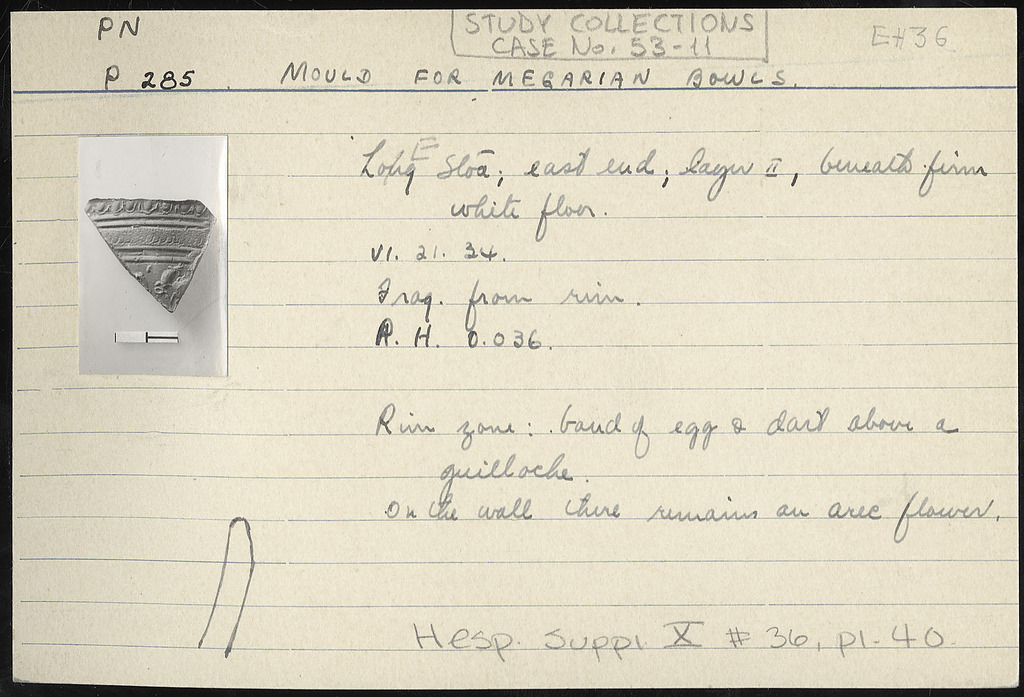 PN
STUDY COLLECTIONS
CASE No. 53-11
E#36
P 285 MOULD FOR MEGARIAN BOWLS.
E
Long Stoa; east end; layer II, beneath firm
white floor.
VI. 21. 34.
Frag. from rim.
P. H. 0.036.
Rim zone: band of egg & dart above a
guilloche.
On the wall there remains an arec flower.
Hesp. Suppl. X # 36, pl. 40.